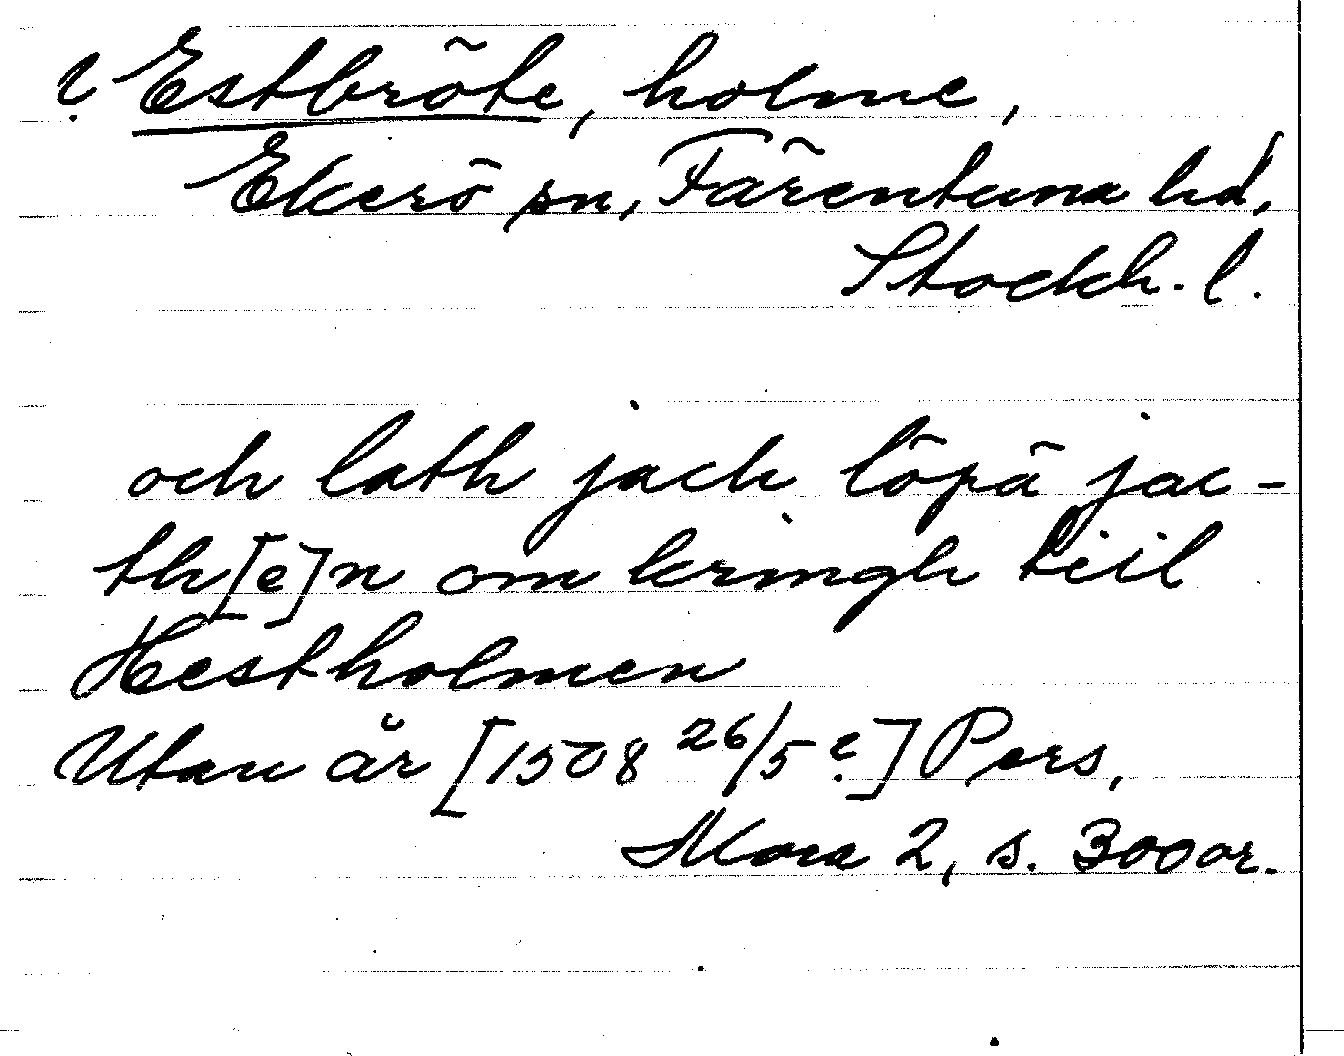 ? Estbröte, holme,
Ekerö sn, Färentuna hd,
Stockh. l.
och lath jach löpä jac-
th[e]n om kringh tiil
Hestholmen
Utan år [1508 26/5 ?] Pers,
Mora 2, s. 300 or.